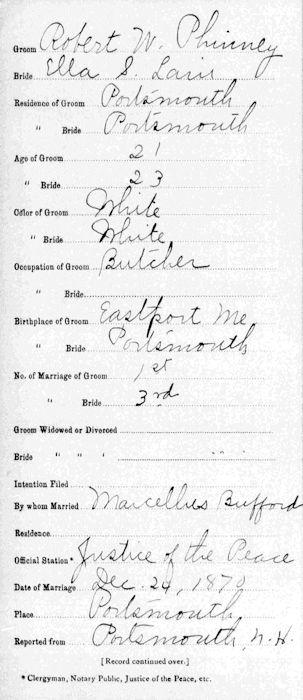 Groom Robert W. Phinney
Bride Ella S.
Residence of Groom Portsmouth
" Bride Portsmouth
Age of Groom 21
" Bride 23
Color of Groom White
" Bride White
Occupation of Groom Butcher
" Bride
Birthplace of Groom Eastport Me
" Bride Portsmouth
No. of Marriage of Groom 1st
" Bride 3rd
Groom Widowed or Divorced
Bride " " "
Intention Filed
By whom Married Marcellus Bufford
Residence
Official Station* Justice of the Peace
Date of Marriage Dec. 24, 1870
Place Portsmouth
Reported from Portsmouth, N.H.
[Record continued over.]
* Clergyman, Notary Public, Justice of the Peace, etc.